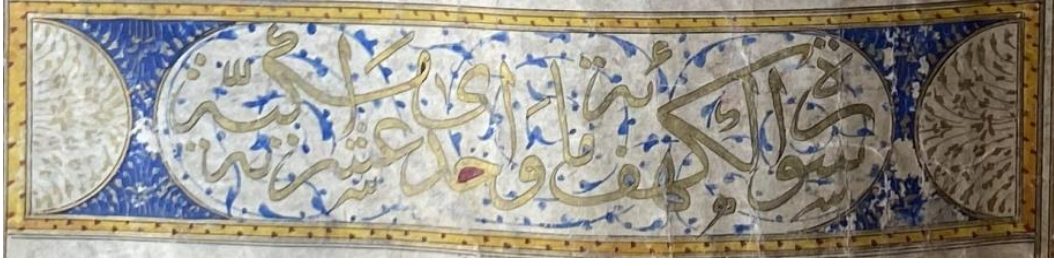 سورة الكهف مائة واحدى عشر آية مكية